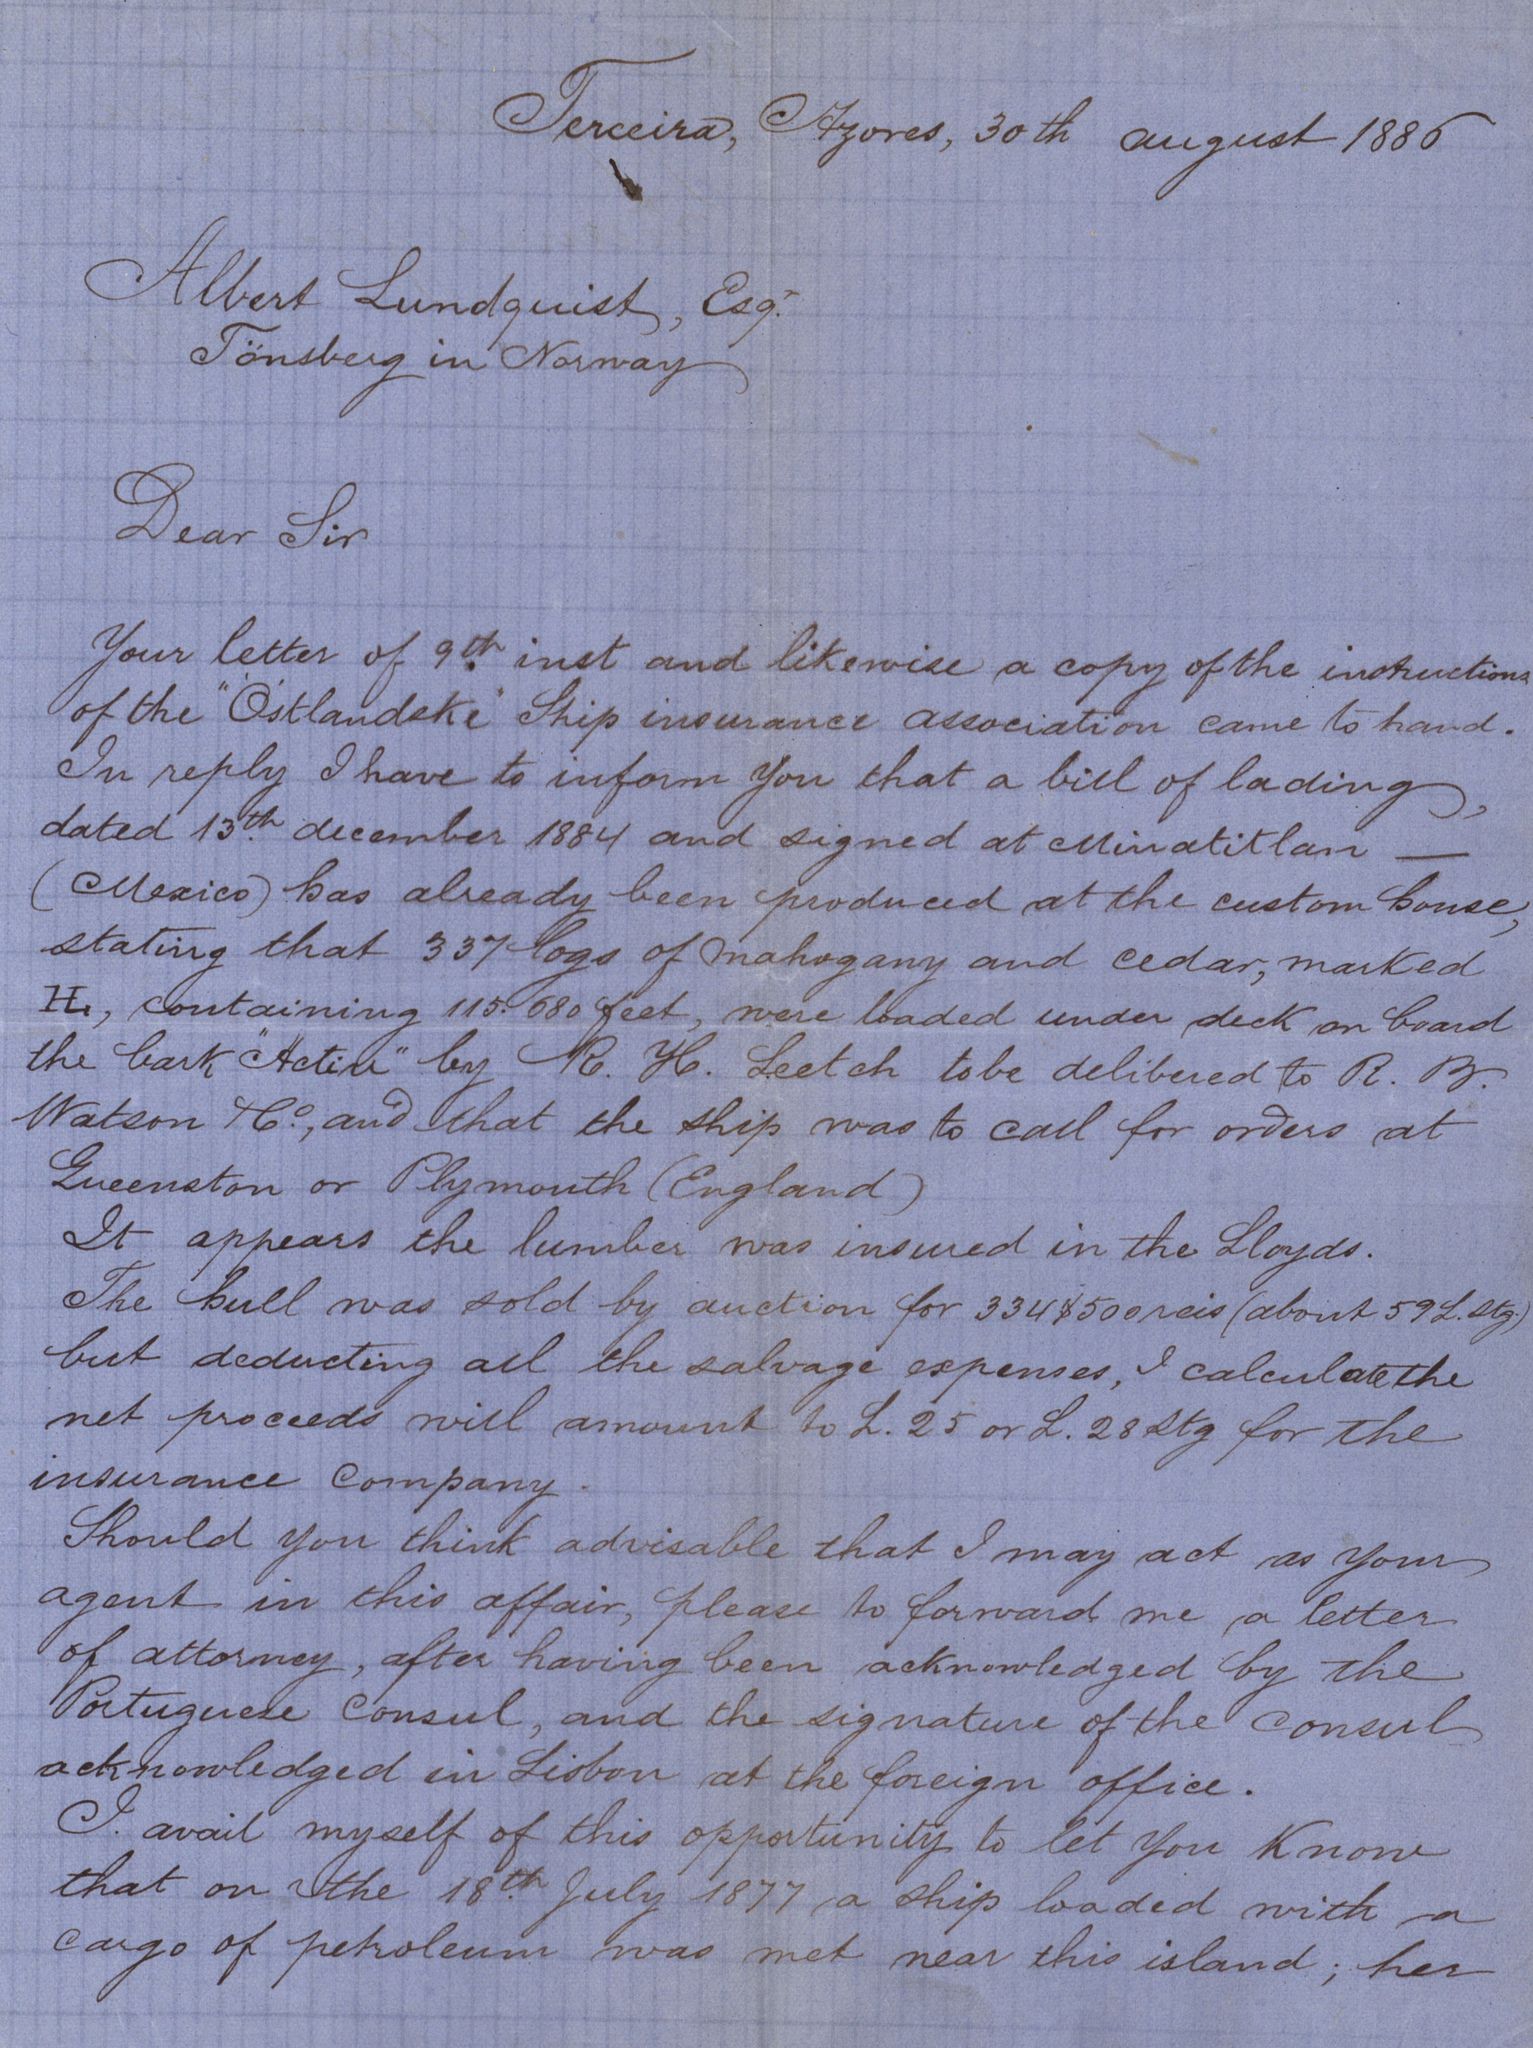 Terceira, Azores, 30th august 1886
Albert Lundquist, Esqr.
Tönsberg in Norway
Dear Sir
Your letter of 9th. inst and likewise a copy of the instructions
of the "Östlandske" Ship insurance association came to hand.
In reply I have to inform you that a bill of lading,
dated 13th. december 1884 and signed at Minatitlan —
(Mexico) has already been produced at the custom house,
stating that 337 logs of mahogany and cedar, marked
H, containing 115.680 feet, were loaded under deck on board
the bark "Activ" by R. H. Leetch to be delibered to R. B.
Watson & Co, and that the ship was to call for orders at
Queenston or Plymouth (England)
It appears the lumber was insured in the Lloyds.
The hull was sold by auction for 334$500 reis (about 59 L. Stg.)
but deducting all the salvage expenses, I calculate the
net proceeds will amount to L. 25 or L. 28 Stg for the
insurance company.
Should you think advisable that I may act as your
agent in this affair, please to forward me a letter
of attorney, after having been acknowledged by the
Portuguese consul, and the signature of the consul
acknowledged in Lisbon at the foreign office.
I avail myself of this opportunity to let you know
that on the 18th. July 1877 a ship loaded with a
cargo of petroleum was met near this island; her